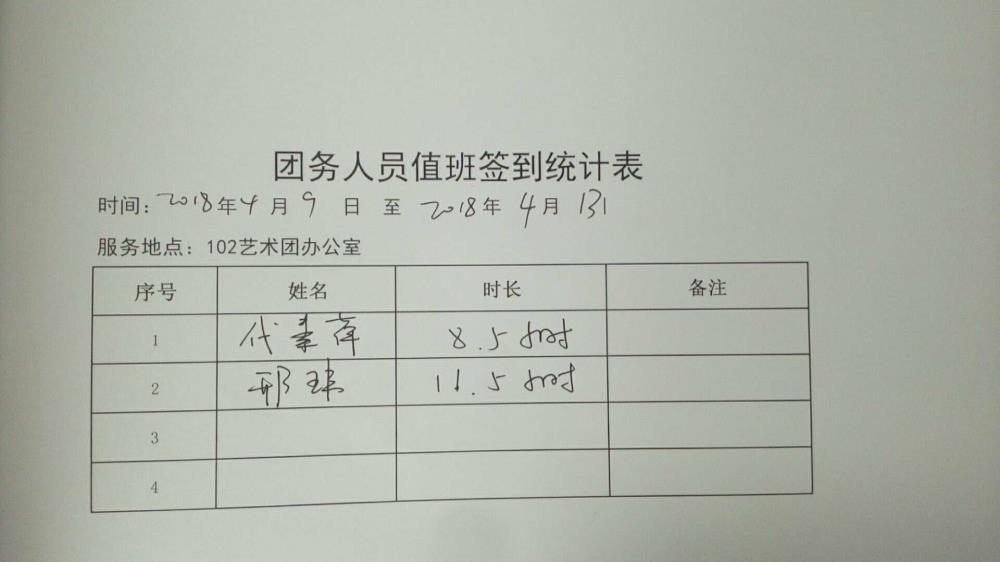 团务人员值班签到统计表
时间：2018年4月9日 至 2018年4月13日
服务地点：102艺术团办公室
序号 姓名 时长 备注
1 代 8.5小时
2 邢 11.5小时
3
4